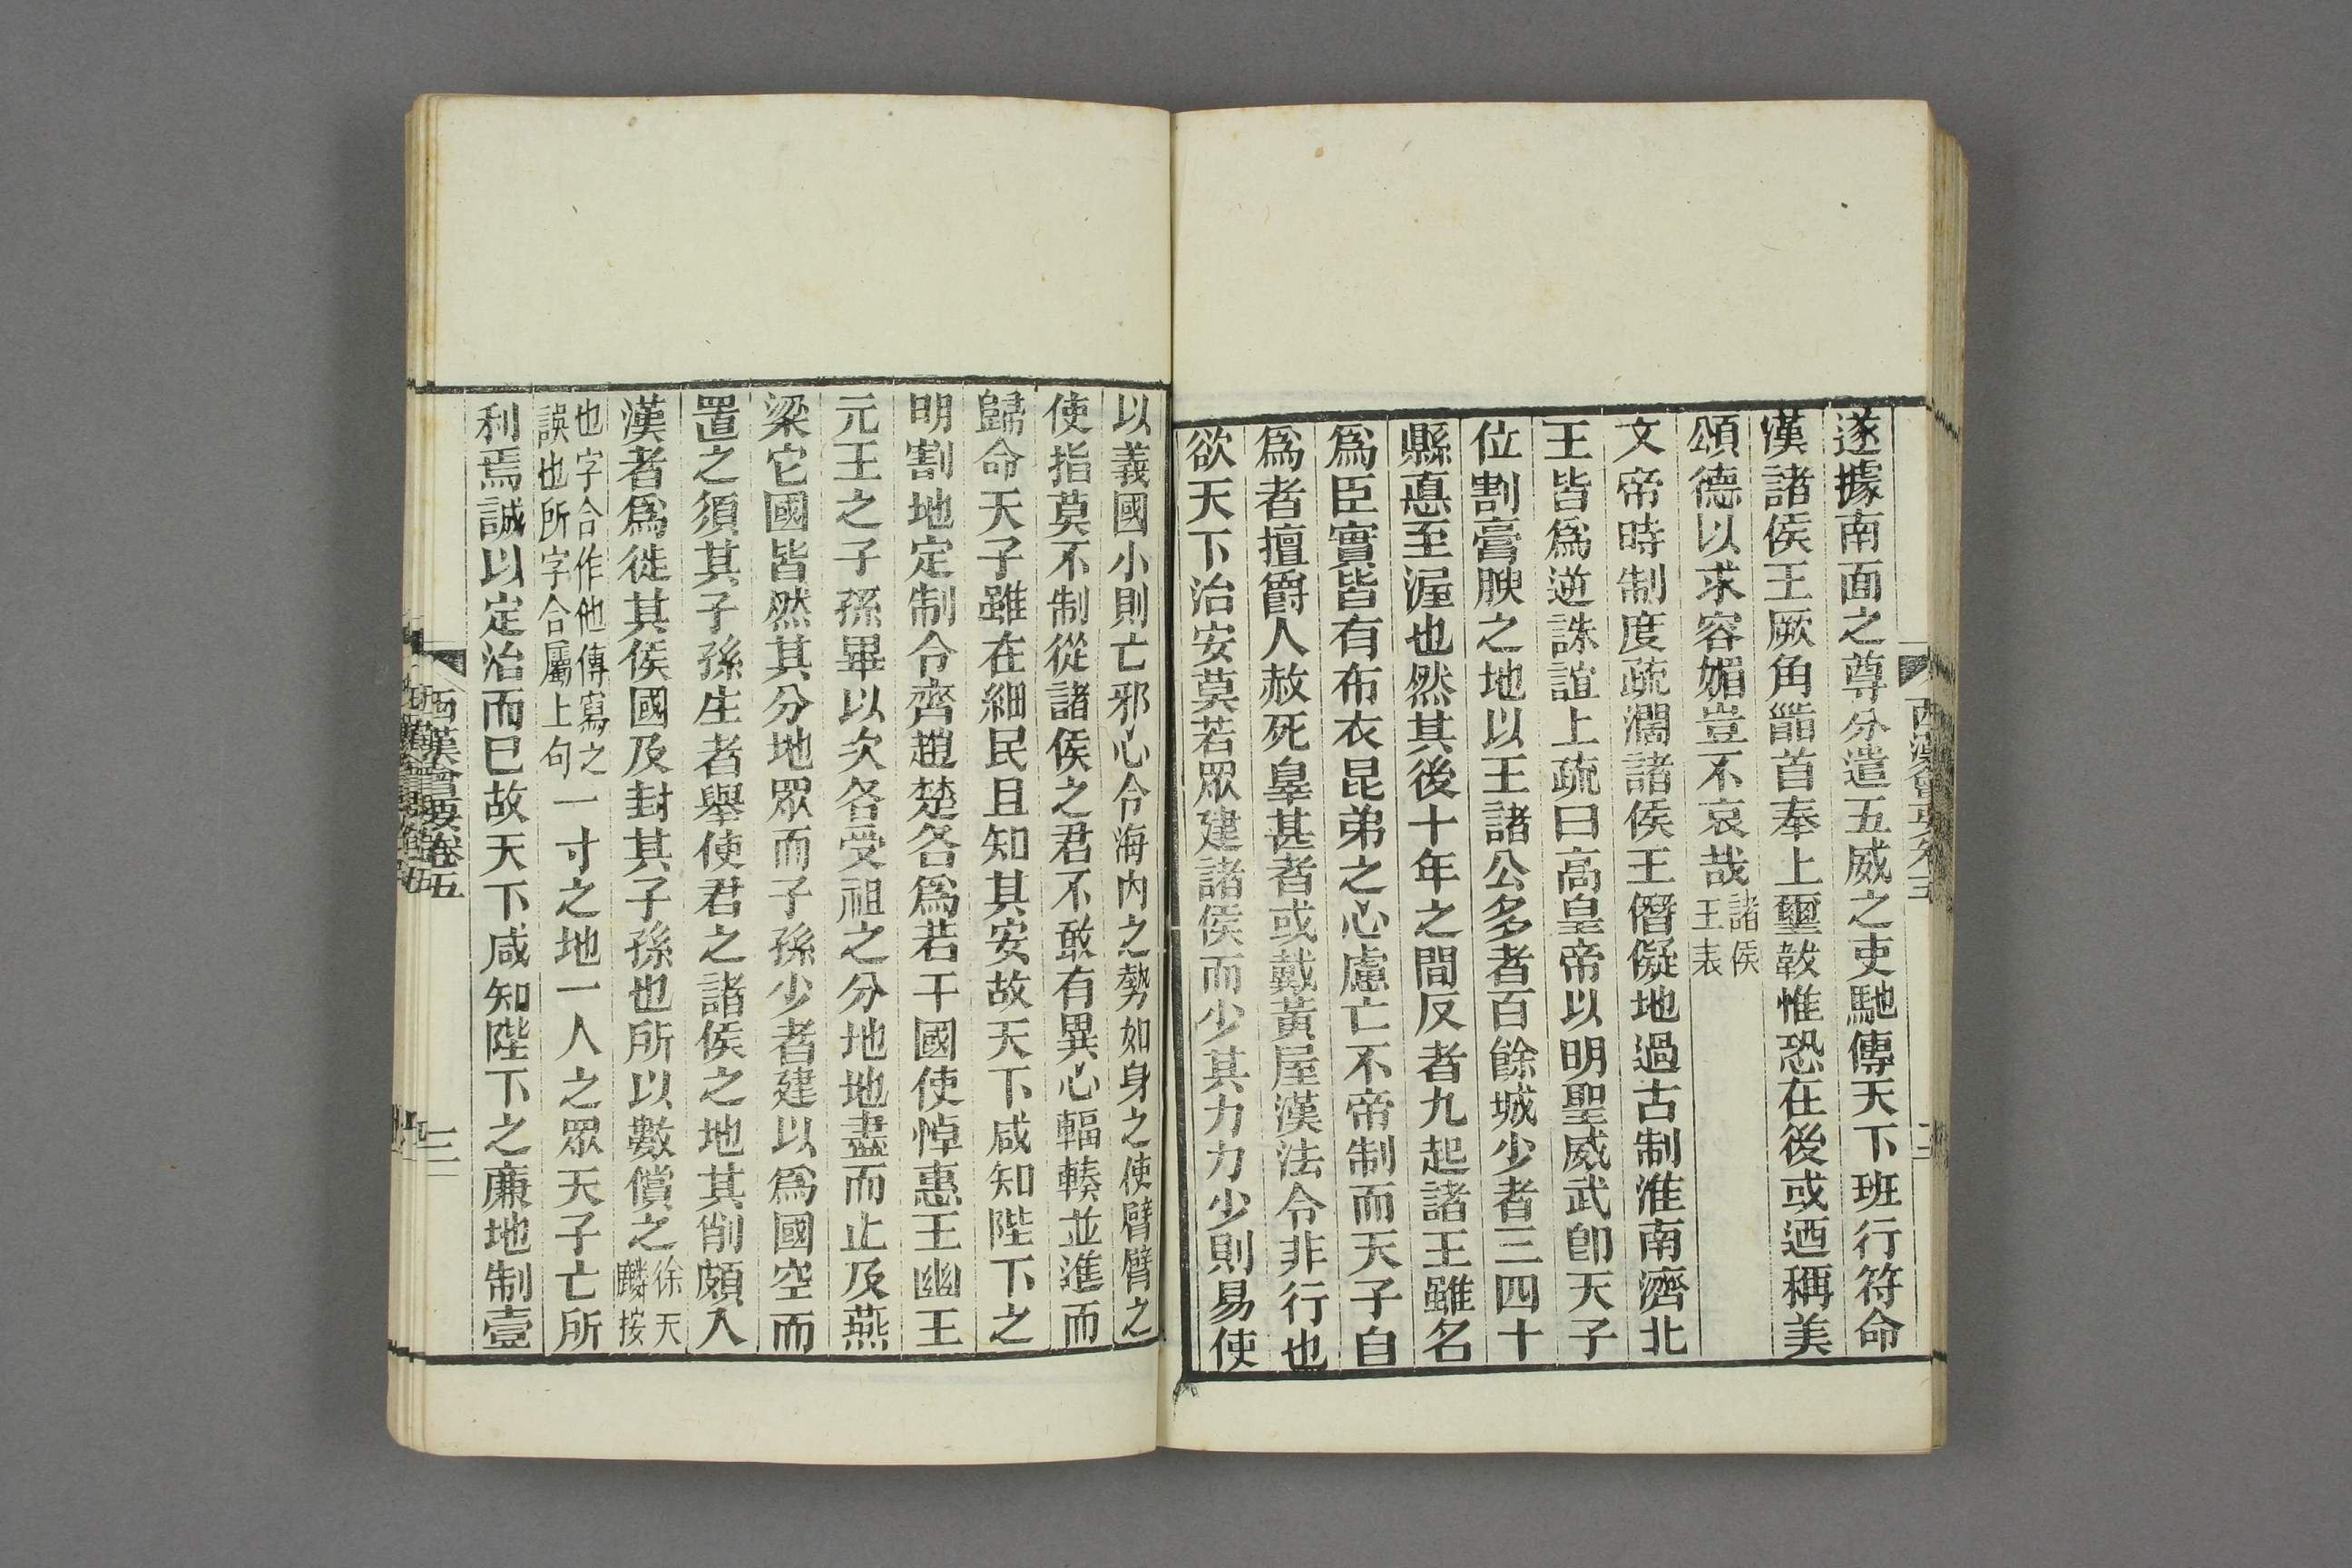 遂據南面之尊分遣五威之吏馳傳天下班行符命
漢諸侯王厥角䭫首奉上璽韍惟恐在後或迺稱美
頌德以求容媚豈不哀哉諸侯王表
文帝時制度疏濶諸侯王僭儗地過古制淮南濟北
王皆爲逆誅誼上疏曰高皇帝以明聖威武卽天子
位割膏腴之地以王諸公多者百餘城少者三四十
縣惪至渥也然其後十年之間反者九起諸王雖名
爲臣實皆有布衣昆弟之心慮亡不帝制而天子自
爲者擅爵人赦死辠甚者或戴黃屋漢法令非行也
欲天下治安莫若眾建諸侯而少其力力少則易使
以義國小則亡邪心令海內之勢如身之使臂臂之
使指莫不制從諸侯之君不敢有異心輻輳並進而
歸命天子雖在細民且知其安故天下咸知陛下之
明割地定制令齊趙楚各爲若干國使悼惠王幽王
元王之子孫畢以次各受祖之分地地盡而止及燕
梁它國皆然其分地眾而子孫少者建以爲國空而
置之須其子孫生者舉使君之諸侯之地其削頗入
漢者爲徙其侯國及封其子孫也所以數償之徐天麟按
也字合作他傳寫之誤也所字合屬上句一寸之地一人之眾天子亡所
利焉誠以定治而已故天下咸知陛下之廉地制壹
西漢會要卷五
三